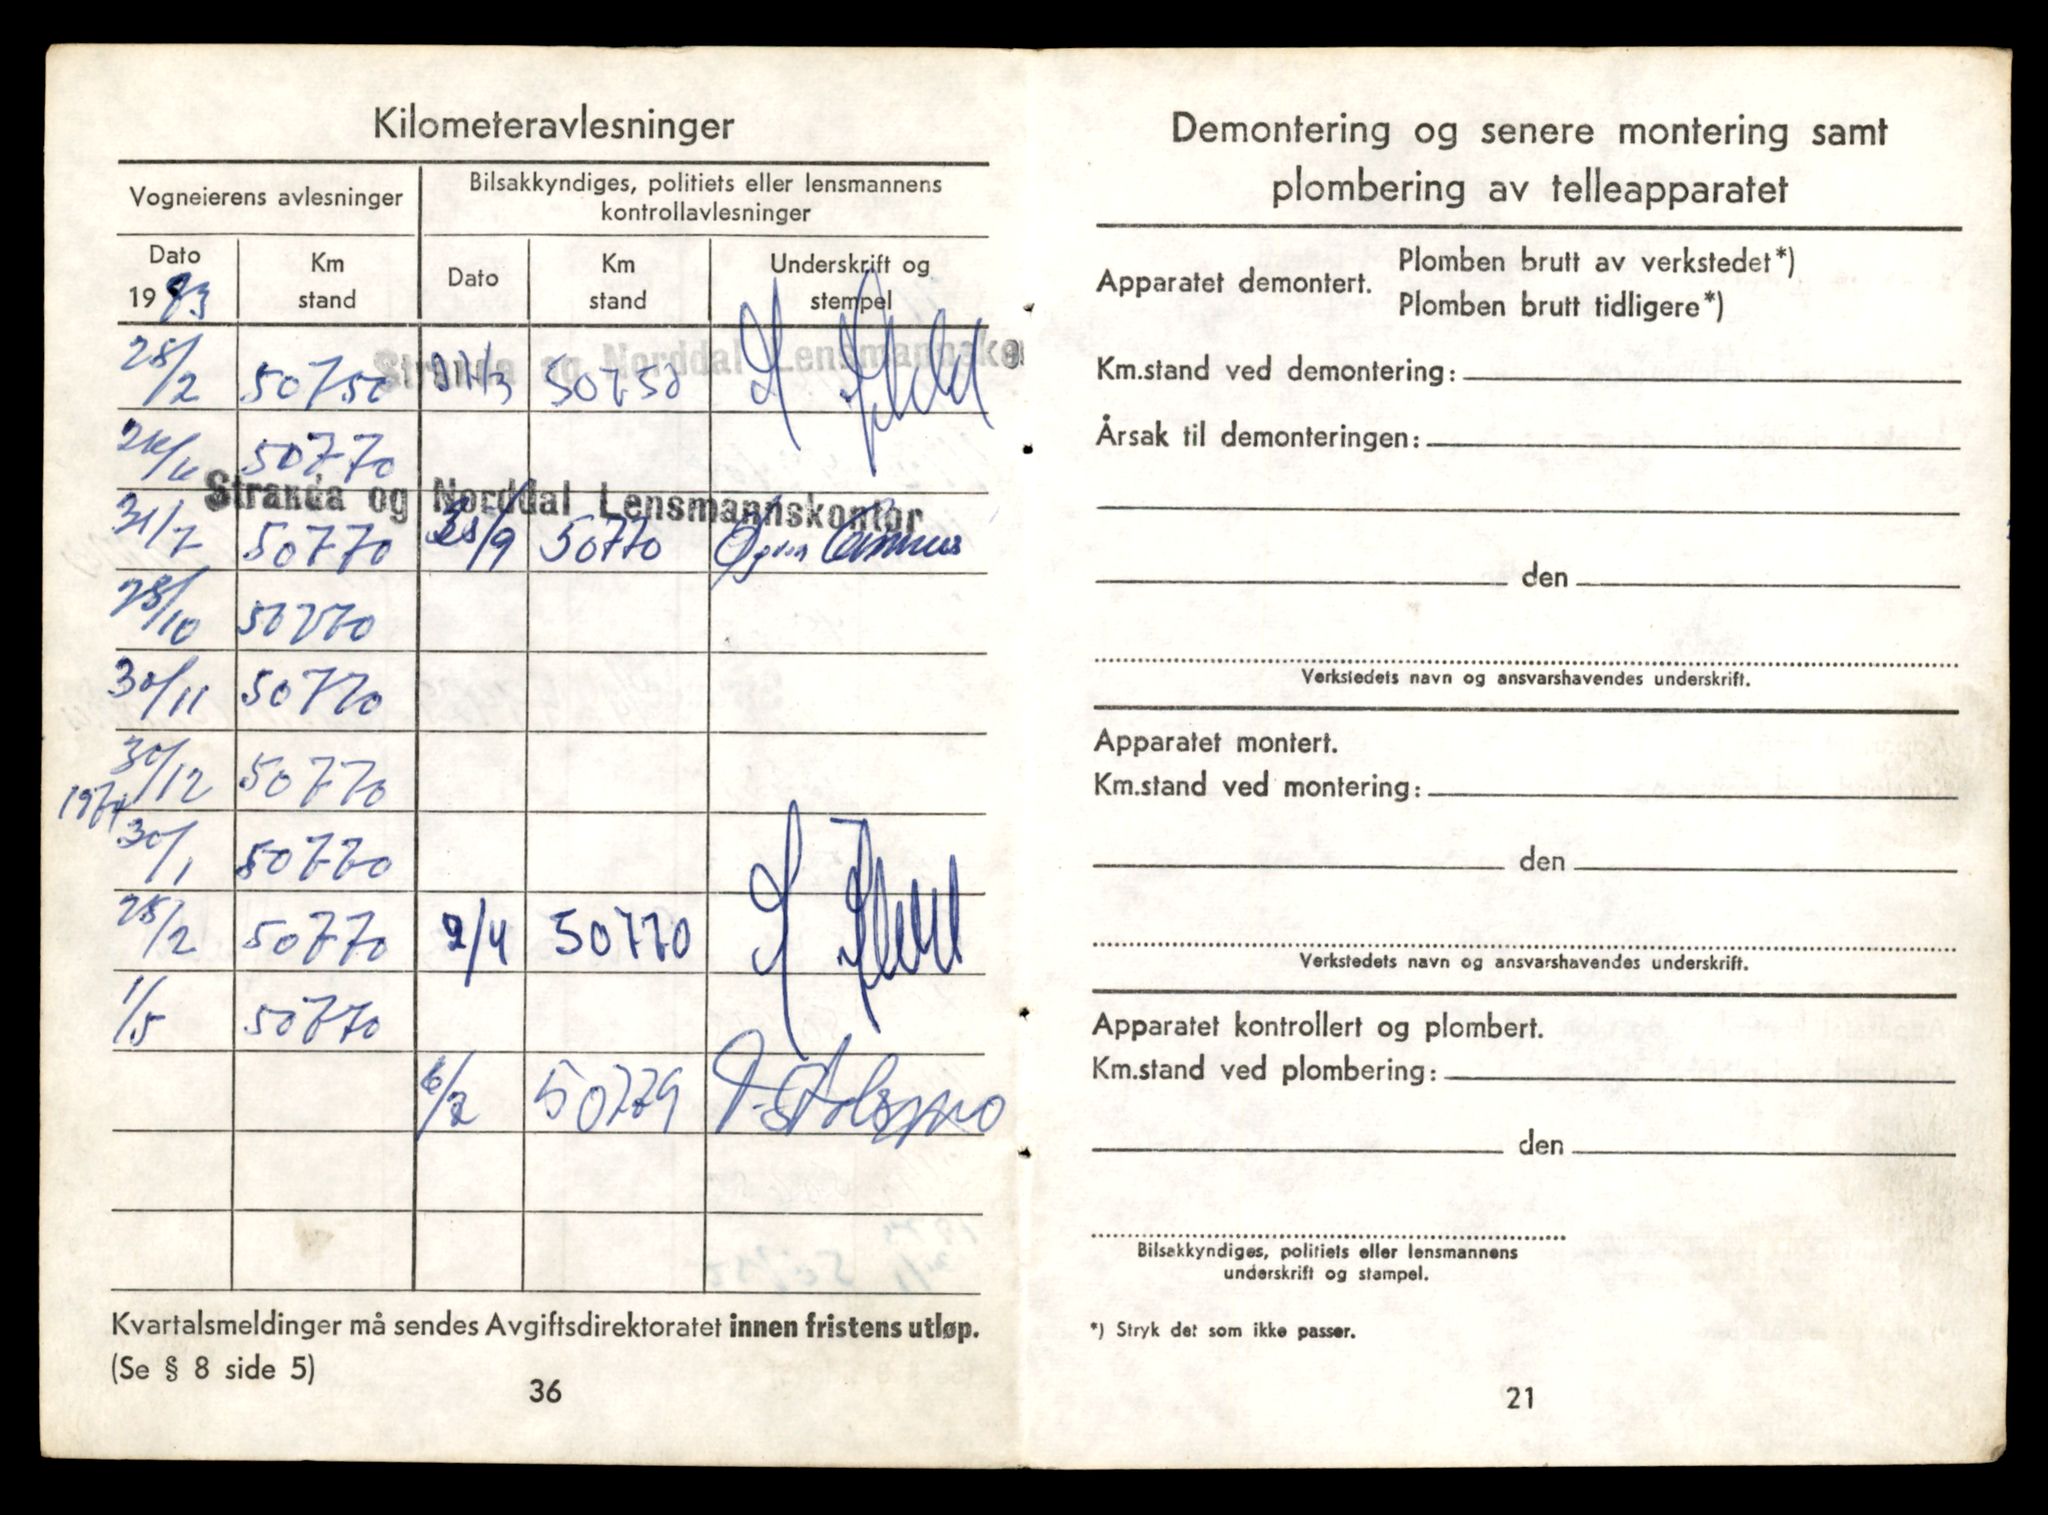 Kilometeravlesninger
Vogneierens avlesninger
Bilsakkyndiges, politiets eller lensmannens
kontrollavlesninger
Dato
1973
Km
stand
Dato
Km
stand
Underskrift og
stempel
Stranda og Norddal Lensmannsko
28/2 50750 50750
50770
Stranda og Norddal Lensmannskontor
31/7 50770 50770
28/10 50770
30/11 50770
30/12 50770
1974
30/1 50770
28/2 50770 2/4 50770
1/5 50770
50779
Kvartalsmeldinger må sendes Avgiftsdirektoratet innen fristens utløp.
(Se § 8 side 5)
36
Demontering og senere montering samt
plombering av telleapparatet
Apparatet demontert.
Plomben brutt av verkstedet*)
Plomben brutt tidligere*)
Km.stand ved demontering:
Årsak til demonteringen:
den
Verkstedets navn og ansvarshavendes underskrift.
Apparatet montert.
Km.stand ved montering:
den
Verkstedets navn og ansvarshavendes underskrift.
Apparatet kontrollert og plombert.
Km.stand ved plombering:
den
Bilsakkyndiges, politiets eller lensmannens
underskrift og stempel.
*) Stryk det som ikke passer.
21